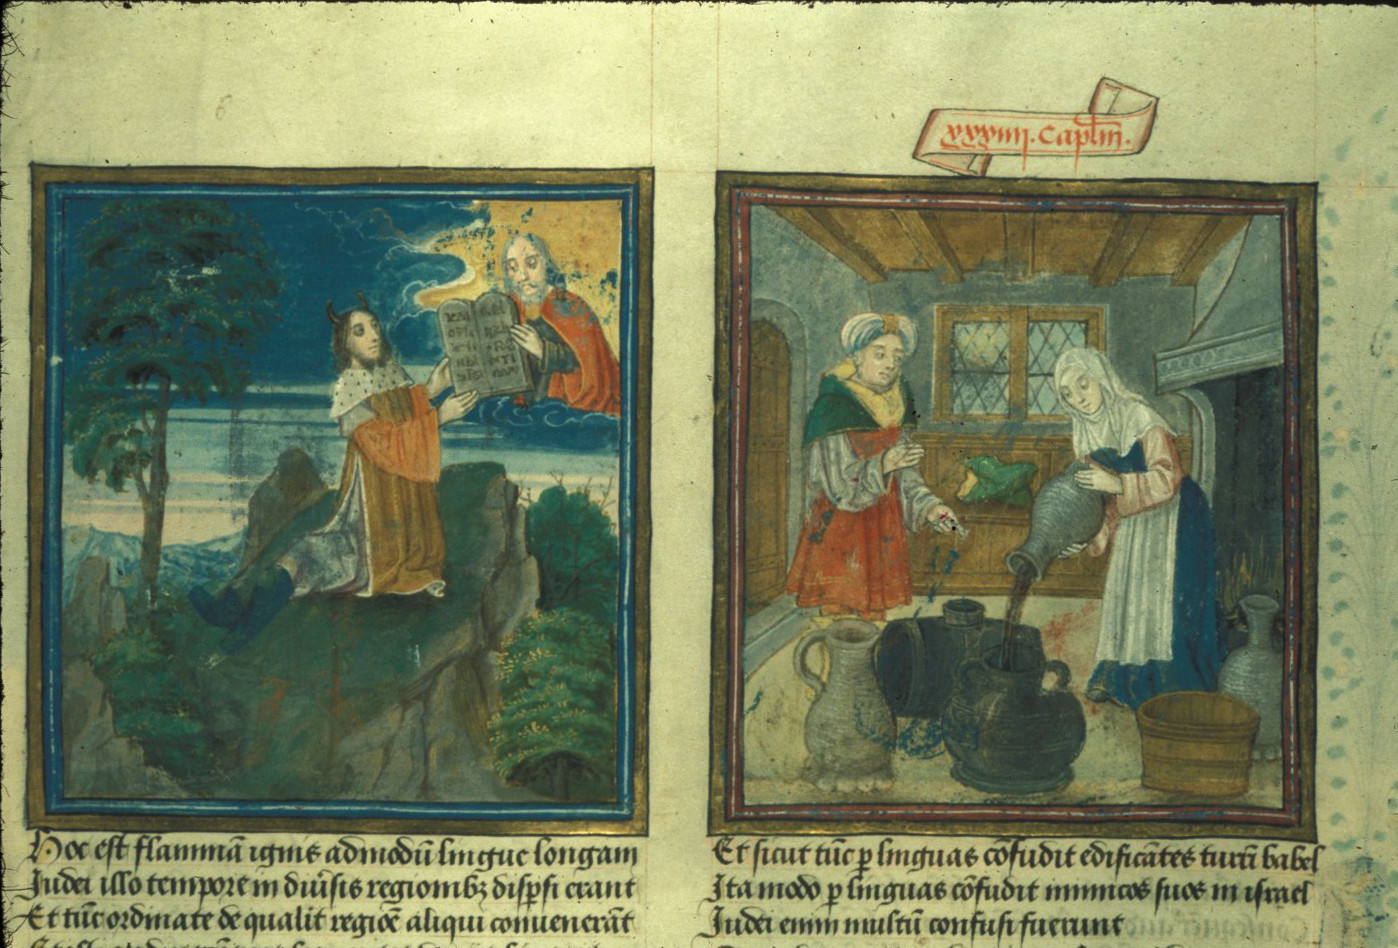 xxxiiii. Capl̄m.
Hoc est flammā ignis admodū lingue longam
Iudei illo tempore in diũsis regionibꝫ disp̄si erant
Et tūc ordinate de qualit regiōe aliqui convenerāt
Et sicut tūc ꝑ linguas cōfudit edificātes turrī babel
Ita modo ꝑ linguas cōfudit inimicos suos in israel
Iudei enim multū confusi fuerunt